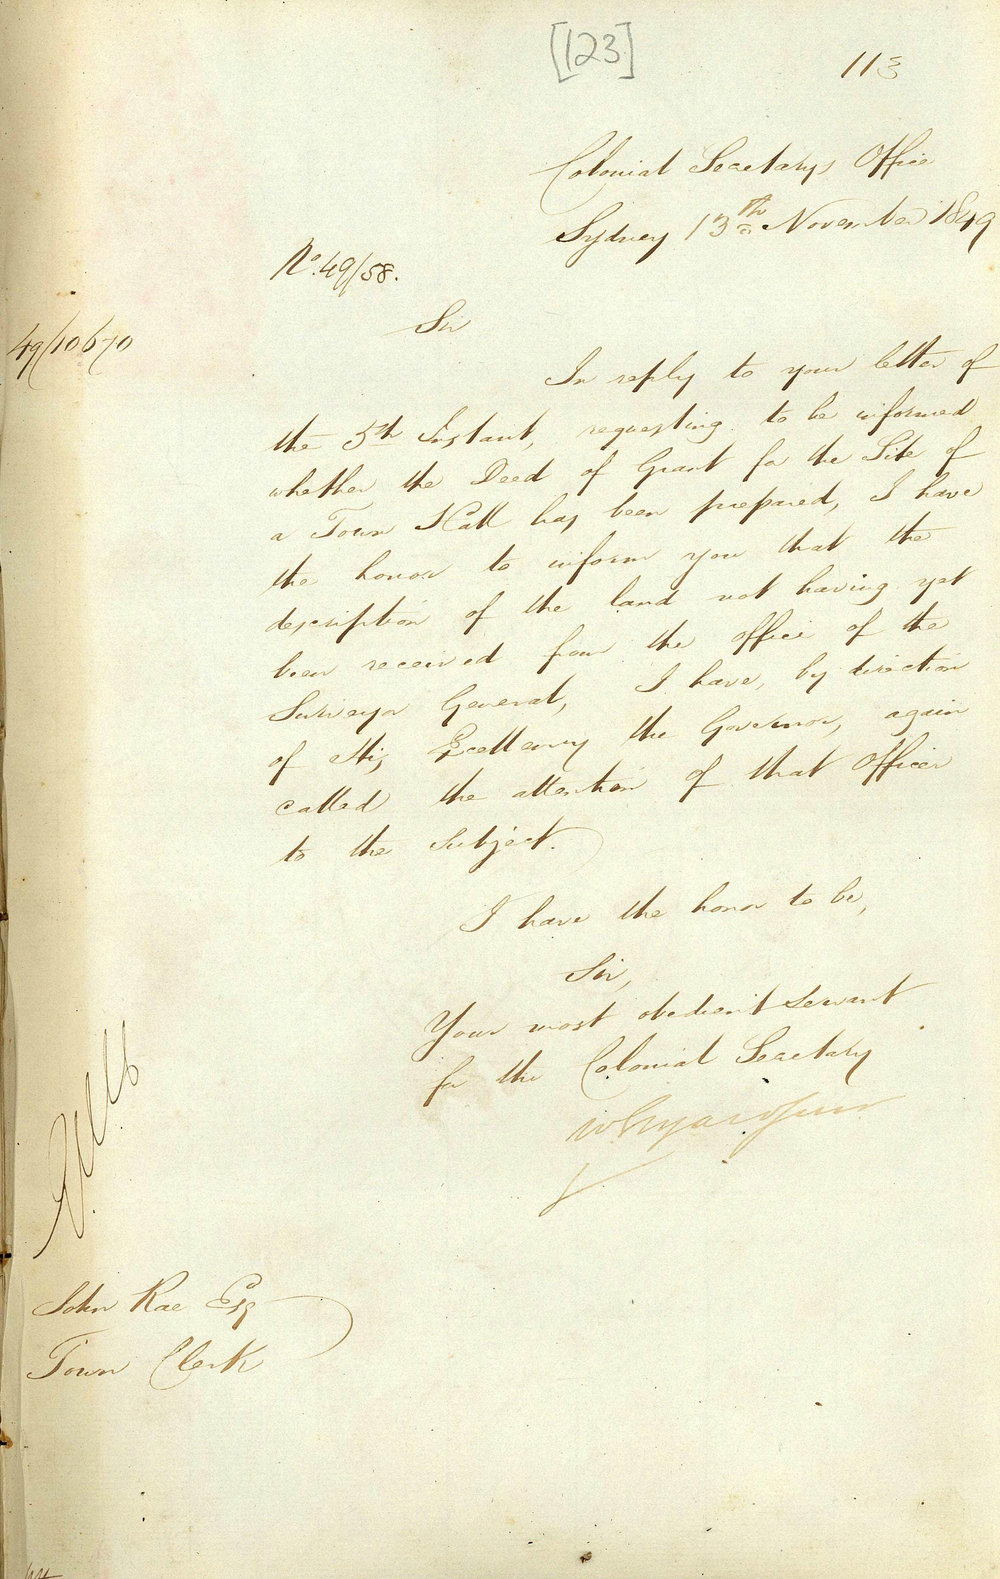 [123]
113
Colonial Secretary's Office
Sydney 13th November 1849
No. 49/58.
49/10670
Sir
In reply to your letter of
the 5th Instant, requesting to be informed
whether the Deed of Grant for the Site of
a Town Hall has been prepared, I have
the honor to inform you that the
description of the land not having yet
been received from the office of the
Surveyor General, I have, by direction
of His Excellency the Governor, again
called the attention of that Officer
to the subject.
I have the honor to be,
Sir,
Your most obedient Servant
for the Colonial Secretary
John Rae Esq
Town Clerk